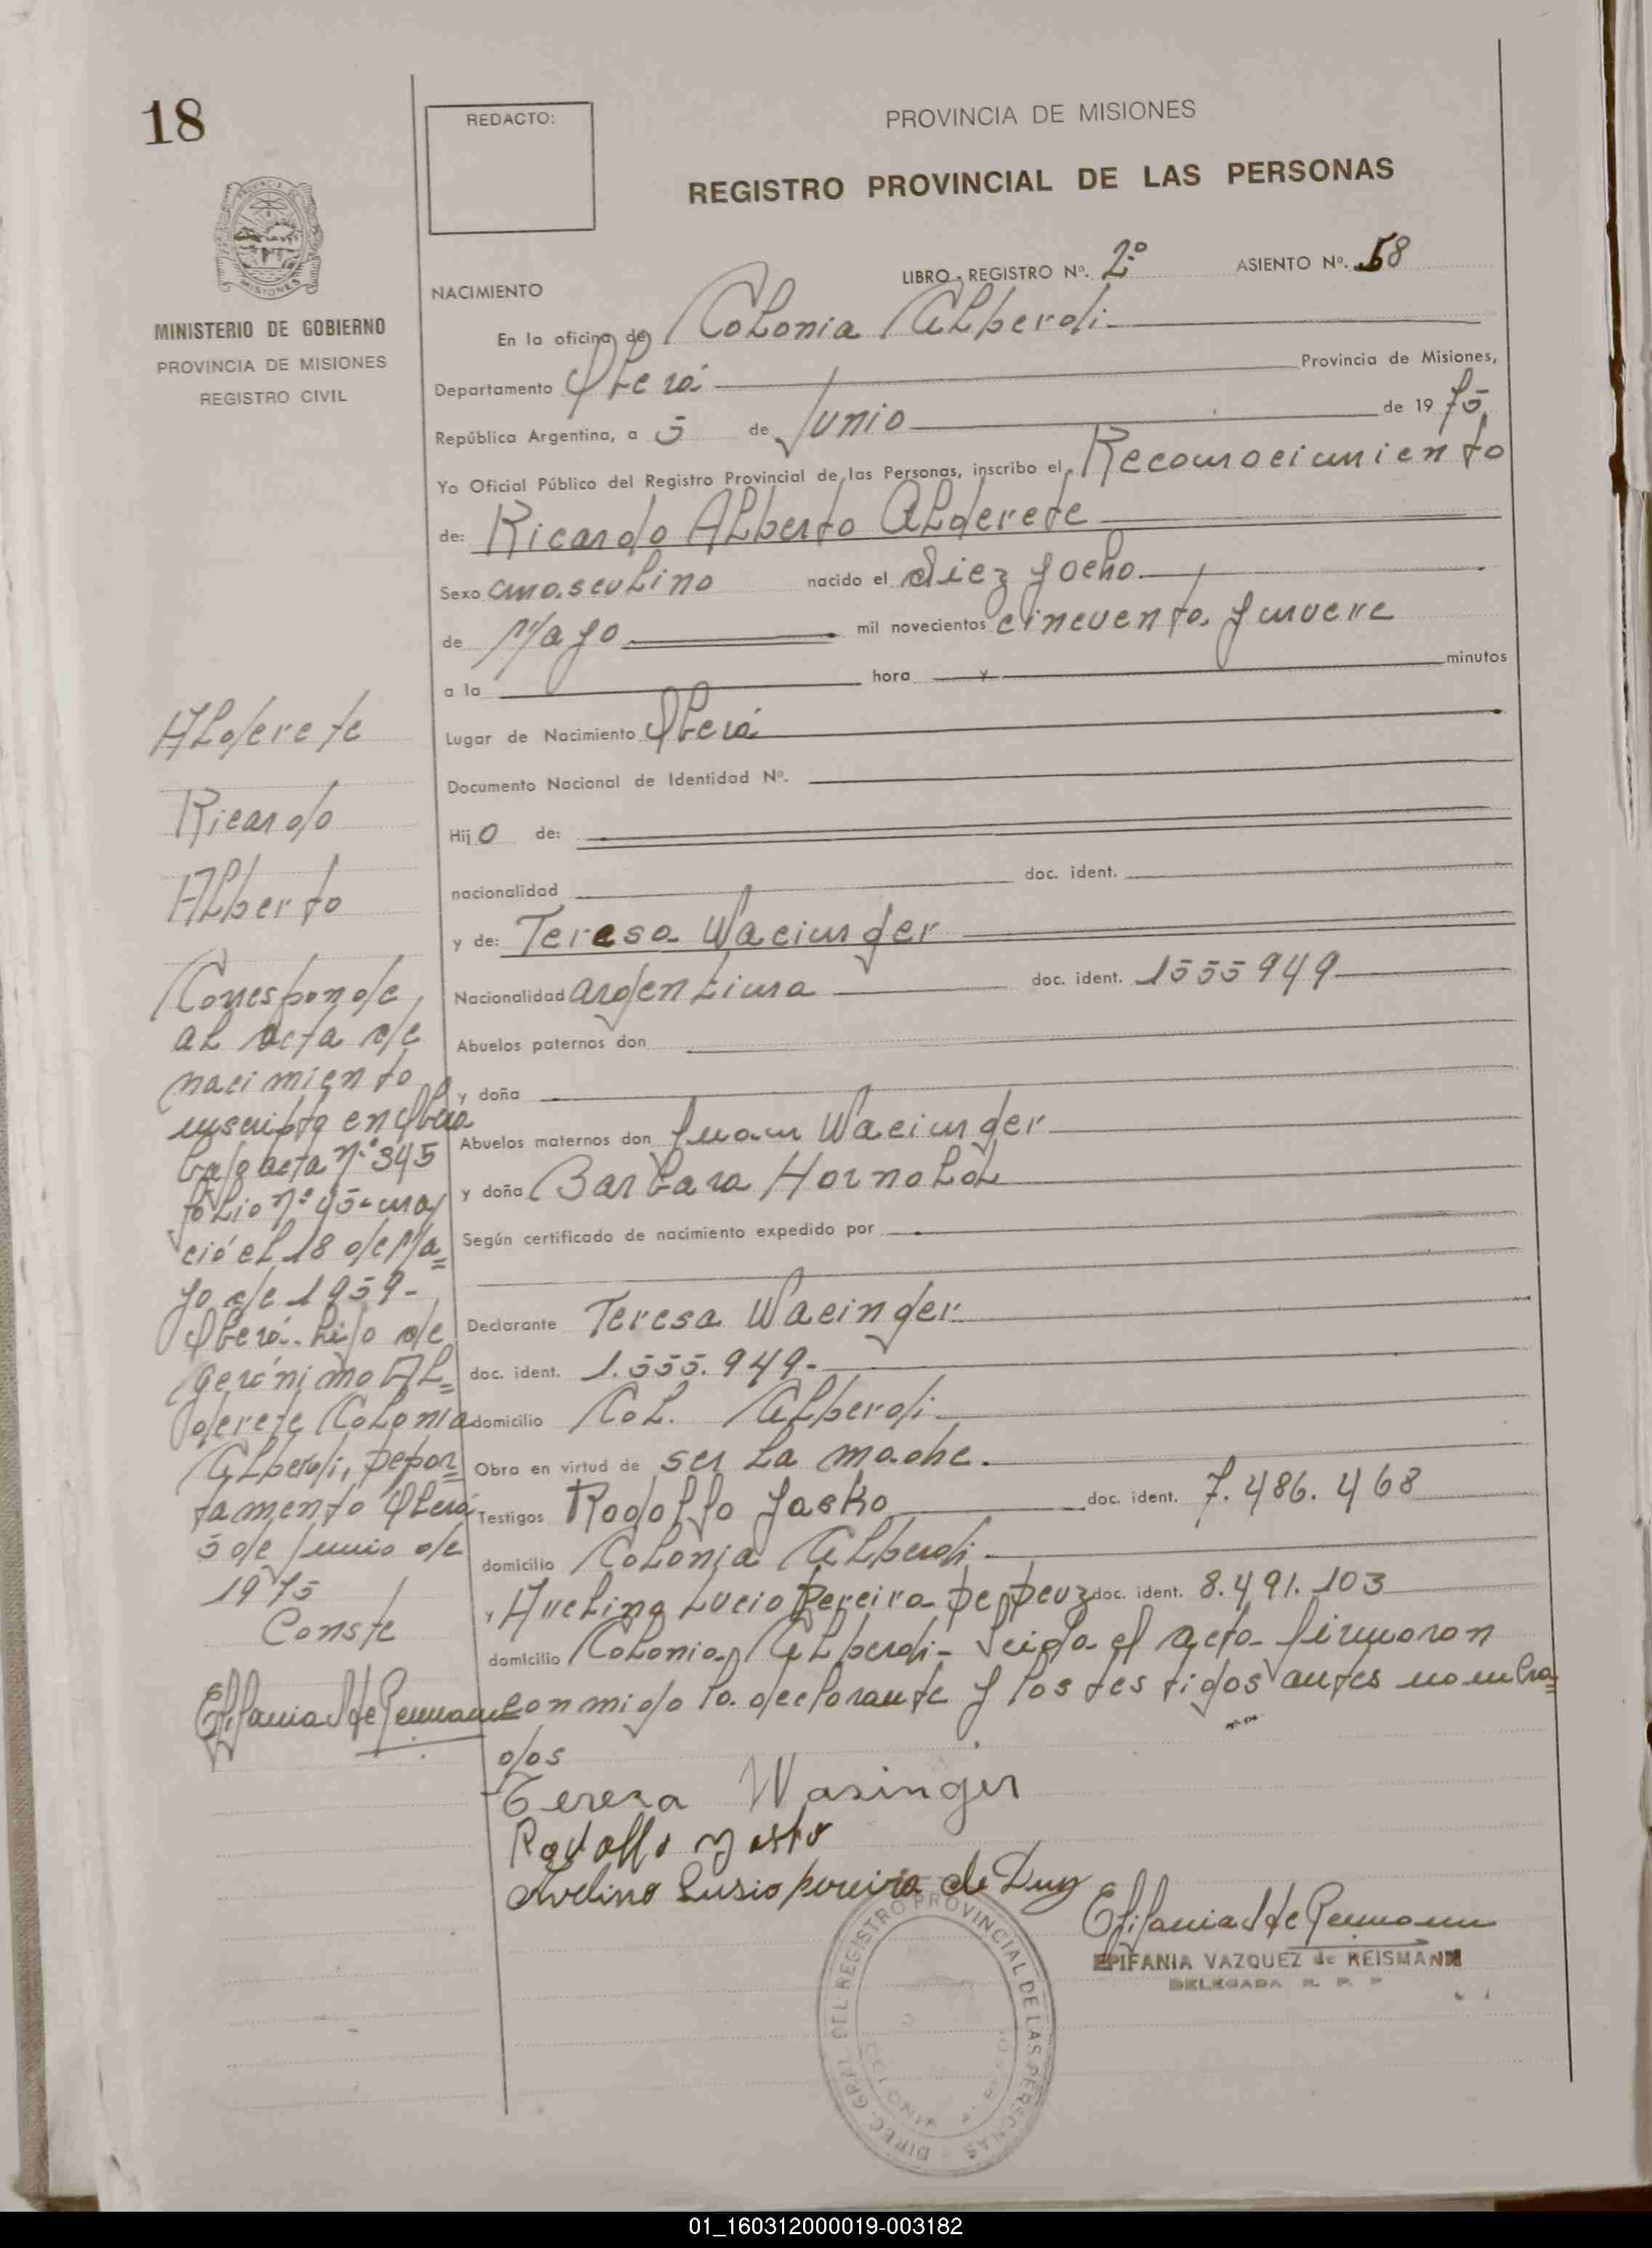 18
REDACTO:
PROVINCIA DE MISIONES
REGISTRO PROVINCIAL DE LAS PERSONAS
MINISTERIO DE GOBIERNO
PROVINCIA DE MISIONES
REGISTRO CIVIL
LIBRO - REGISTRO Nº. 2º ASIENTO Nº. 58
NACIMIENTO
En la oficina de Colonia Alberdi
Departamento Oberá Provincia de Misiones,
República Argentina, a 5 de Junio de 1975
Yo Oficial Público del Registro Provincial de las Personas, inscribo el Reconocimiento
de: Ricardo Alberto Alderete
Sexo masculino nacido el diez y ocho
de Mayo mil novecientos cincuenta y nueve
a la hora minutos
Lugar de Nacimiento Oberá
Documento Nacional de Identidad Nº.
Hijo de:
nacionalidad doc. ident.
y de: Teresa Wacinger
Nacionalidad argentina doc. ident. 1555949
Abuelos paternos don
y doña
Abuelos maternos don Juan Wacinger
y doña Barbara
Según certificado de nacimiento expedido por
Declarante Teresa Wacinger
doc. ident. 1.555.949.-
domicilio Col. Alberdi
Obra en virtud de ser la madre.
Testigos Rodolfo Jasko doc. ident. 7.486.468
domicilio Colonia Alberdi
y Avelino Lucio Pereira De doc. ident. 8.491.103
domicilio Colonia Alberdi- Leida el acta firmaron
conmigo la declarante y los testigos antes nombra=
dos
Alderete
Ricardo
Alberto
Corresponde
al acta de
nacimiento
inscripta en Oberá
bajo acta Nº 345
folio Nº 45- na
ció el 18 de Ma=
yo de 1959-
Oberá.. hijo de
Gerónimo Al=
derete Colonia
Alberdi, Depar=
tamento Oberá
5 de Junio de
1975
Conste
Epifania V de Reismann
Teresa Wasinger
Rodolfo
Avelino Lusio pereira de
Epifania V de Reismann
EPIFANIA VAZQUEZ de REISMANN
DELEGADA R. P. P
DIREC. GRAL. DEL REGISTRO PROVINCIAL DE LAS PERSONAS
01_160312000019-003182